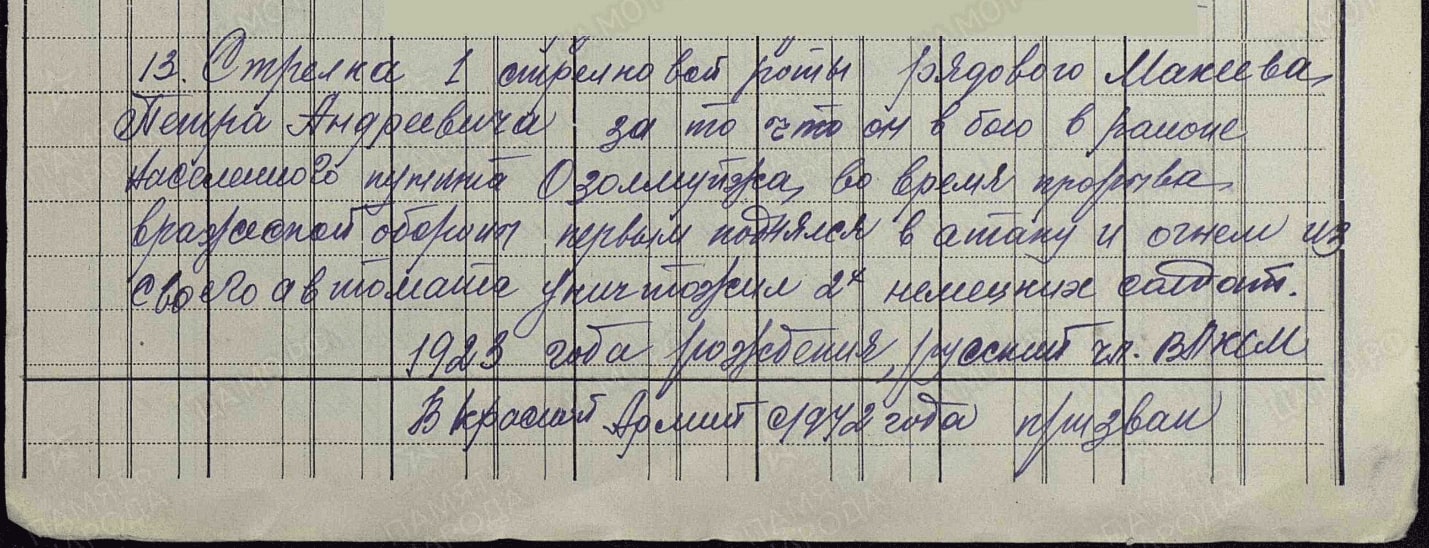 13. Стрелка 1 стрелковой роты рядового Макеева
Петра Андреевича за то что он в бою в районе
населенного пункта Озолмуйжа, во время прорыва
вражеской обороны первым поднялся в атаку и огнем из
своего автомата уничтожил 2х немецких солдат.
1923 года рождения, русский чл. ВЛКСМ
В красной Армии с 1942 года призван